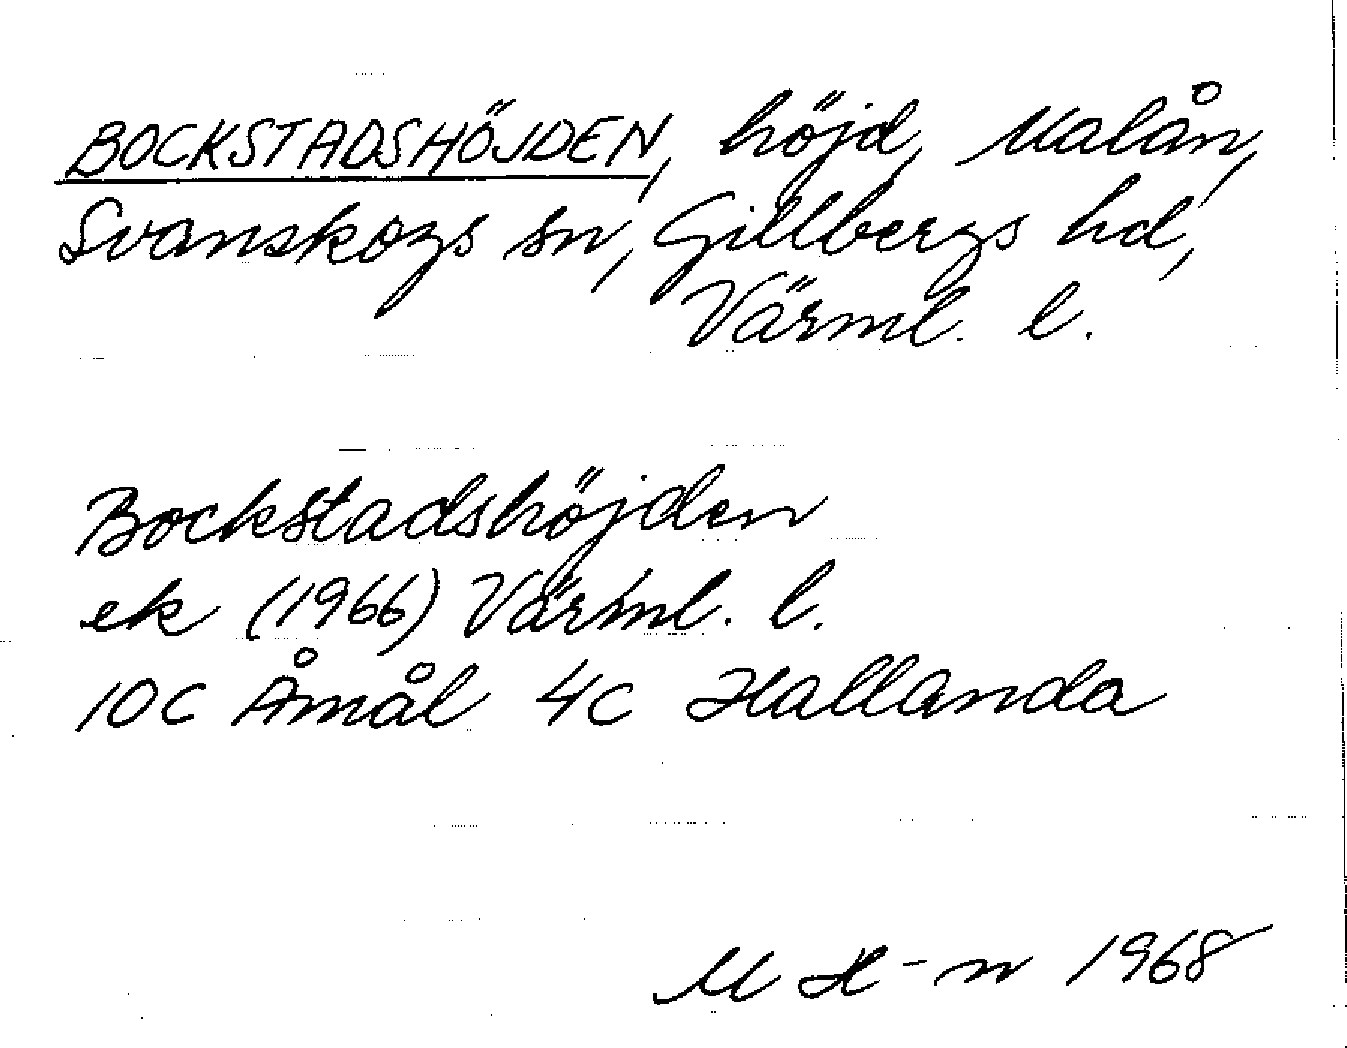 BOCKSTADSHÖJDEN, höjd, Malån,
Svanskogs sn, Gillbergs hd,
Värml. l.
Bockstadshöjden
ek (1966) Värml. l.
10C Åmål 4C Hallanda
M H-n 1968